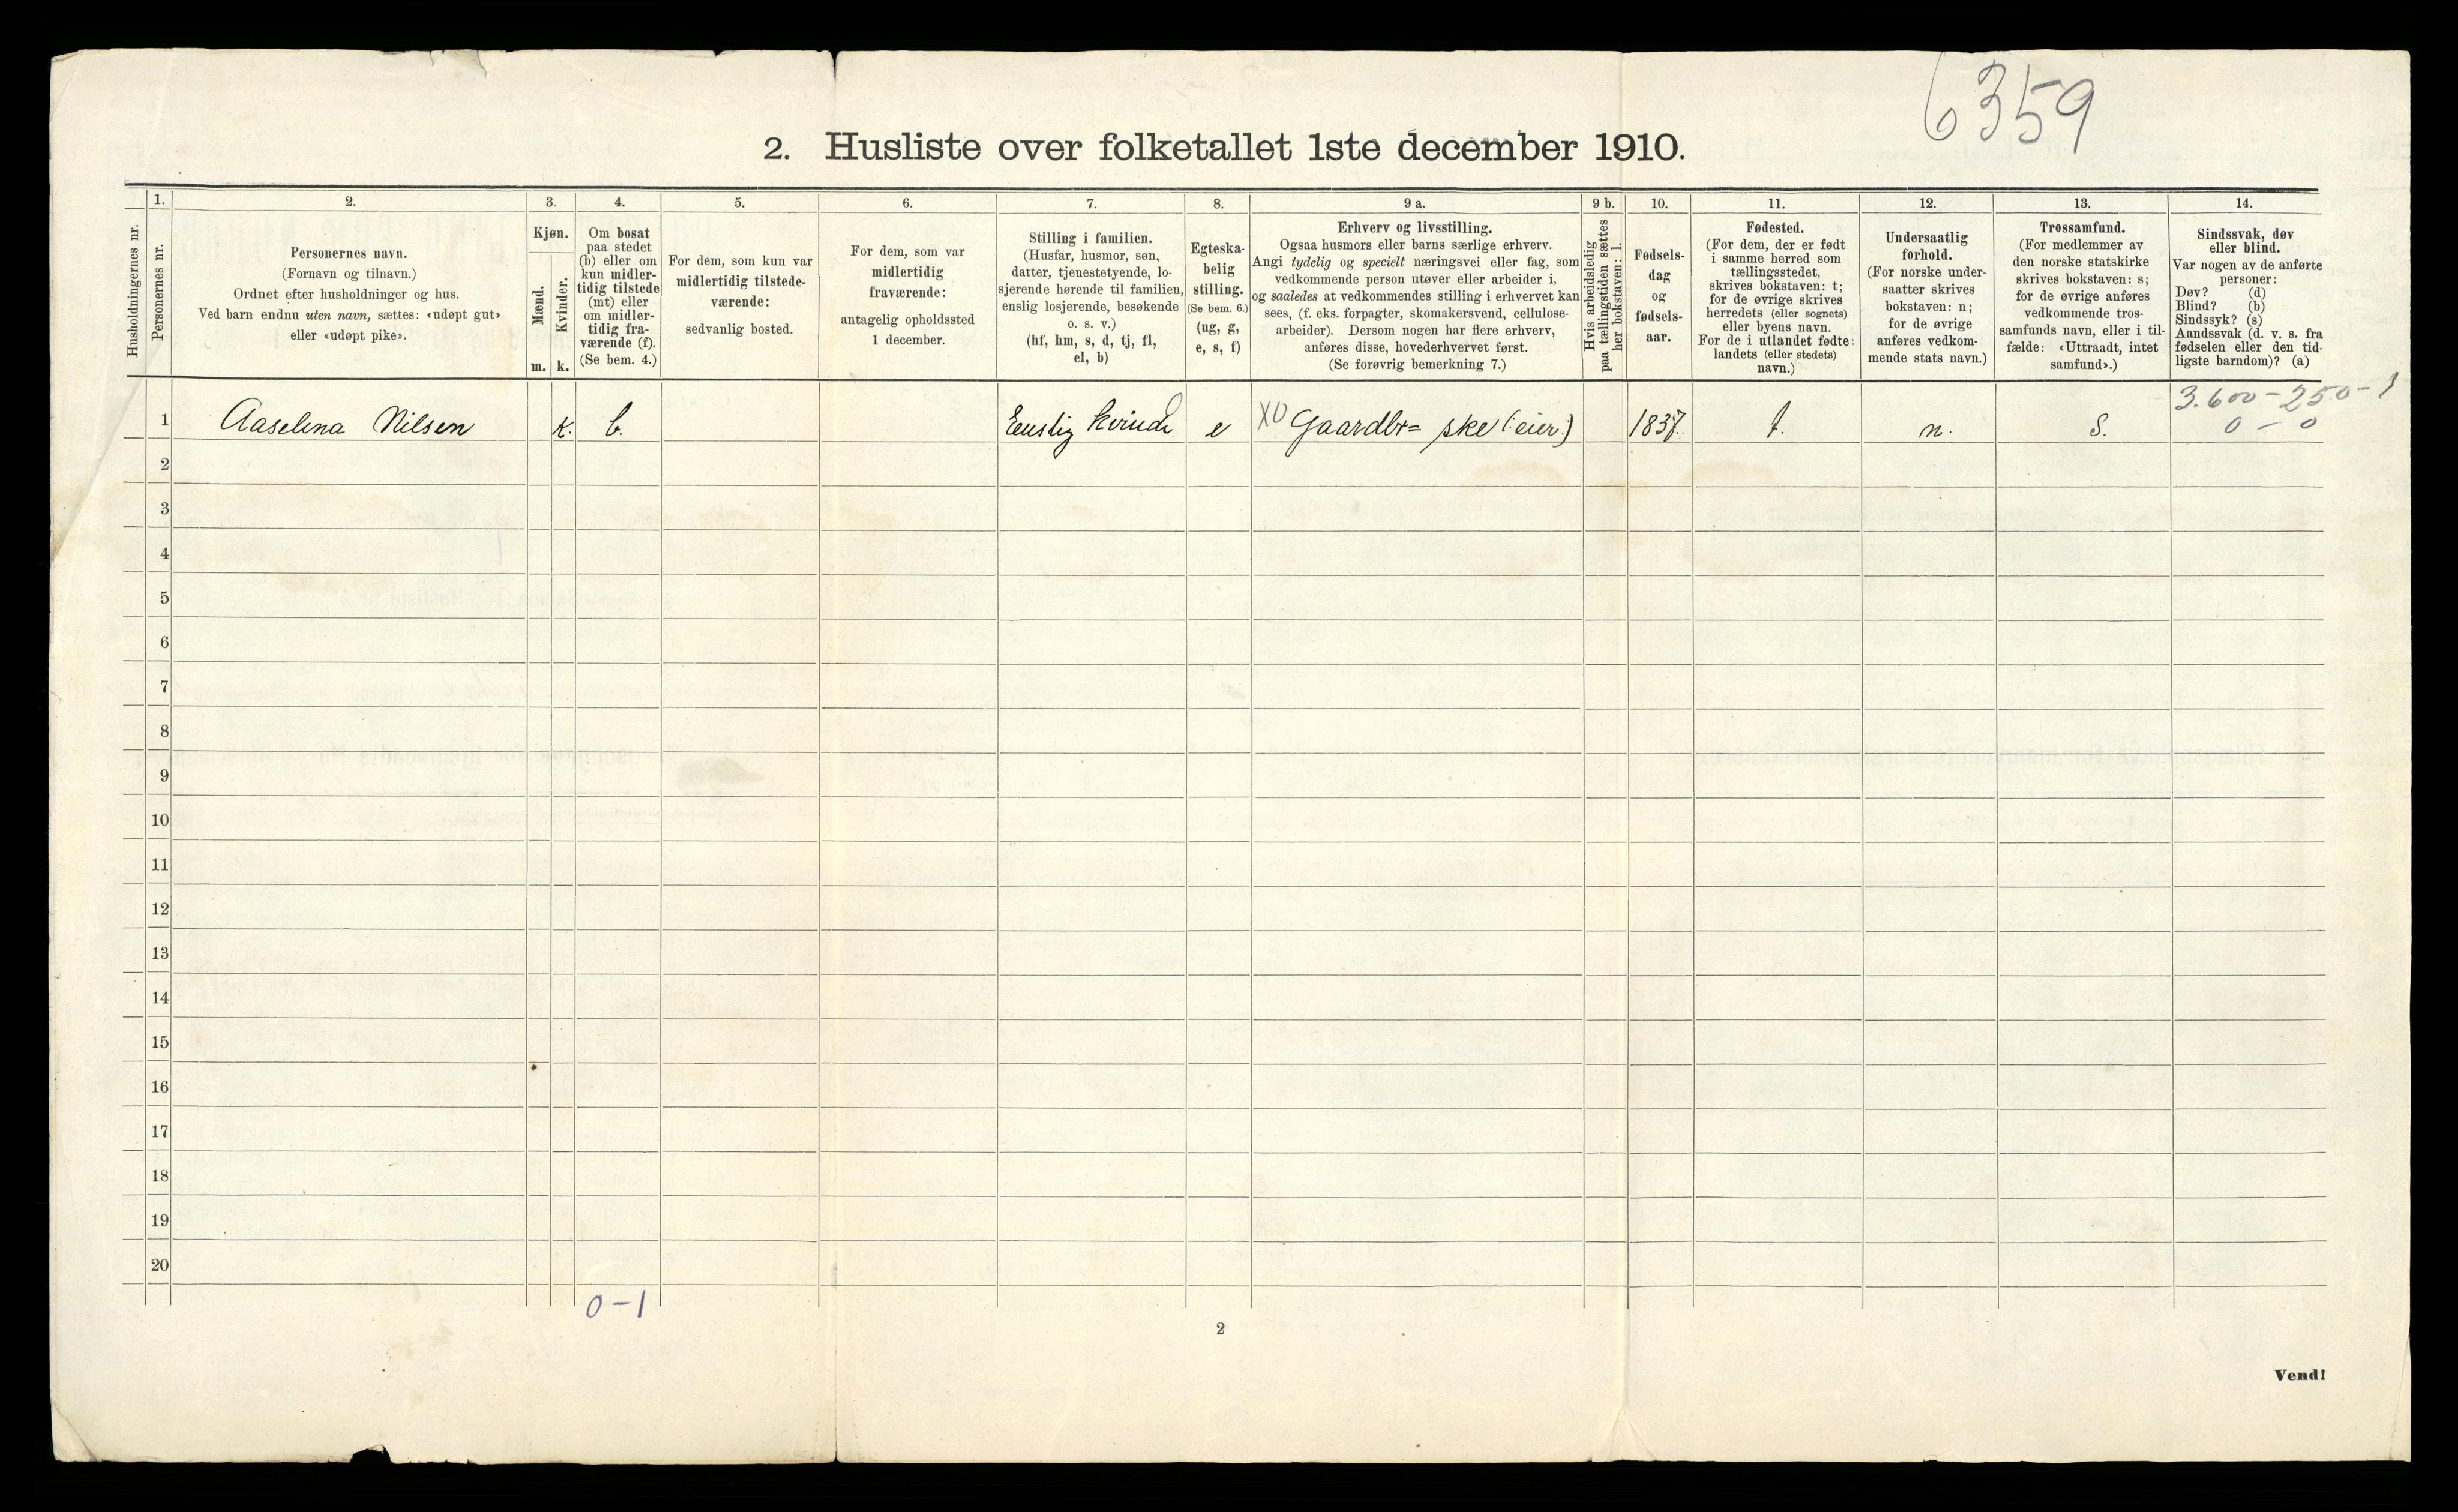 6359
2. Husliste over folketallet 1ste december 1910.
Husholdningernes nr.
1.
Personernes nr.
2.
Personernes navn.
(Fornavn og tilnavn.)
Ordnet efter husholdninger og hus.
Ved barn endnu uten navn, sættes: «udøpt gut»
eller «udøpt pike».
3.
Kjøn.
Mænd.
m.
Kvinder.
k.
4.
Om bosat
paa stedet
(b) eller om
kun midler-
tidig tilstede
(mt) eller
om midler-
tidig fra-
værende (f).
(Se bem. 4.)
5.
For dem, som kun var
midlertidig tilstede-
værende:
sedvanlig bosted.
6.
For dem, som var
midlertidig
fraværende:
antagelig opholdssted
1 december.
7.
Stilling i familien.
(Husfar, husmor, søn,
datter, tjenestetyende, lo-
sjerende hørende til familien,
enslig losjerende, besøkende
o. s. v.)
(hf, hm, s, d, tj, fl,
el, b)
8.
Egteska-
belig
stilling.
(Se bem. 6.)
(ug, g,
e, s, f)
9 a.
Erhverv og livsstilling.
Ogsaa husmors eller barns særlige erhverv.
Angi tydelig og specielt næringsvei eller fag, som
vedkommende person utøver eller arbeider i,
og saaledes at vedkommendes stilling i erhvervet kan
sees, (f. eks. forpagter, skomakersvend, cellulose-
arbeider). Dersom nogen har flere erhverv,
anføres disse, hovederhvervet først.
(Se forøvrig bemerkning 7.)
9 b.
Hvis arbeidsledig
paa tællingstiden sættes
her bokstaven: l.
10.
Fødsels-
dag
og
fødsels-
aar.
11.
Fødested.
(For dem, der er født
i samme herred som
tællingsstedet,
skrives bokstaven: t;
for de øvrige skrives
herredets (eller sognets)
eller byens navn.
For de i utlandet fødte:
landets (eller stedets)
navn.)
12.
Undersaatlig
forhold.
(For norske under-
saatter skrives
bokstaven: n;
for de øvrige
anføres vedkom-
mende stats navn.)
13.
Trossamfund.
(For medlemmer av
den norske statskirke
skrives bokstaven: s;
for de øvrige anføres
vedkommende tros-
samfunds navn, eller i til-
fælde: «Uttraadt, intet
samfund».)
14.
Sindssvak, døv
eller blind.
Var nogen av de anførte
personer:
Døv? (d)
Blind? (b)
Sindssyk? (s)
Aandssvak (d. v. s. fra
fødselen eller den tid-
ligste barndom)? (a)
3.600-250-1
1 Aaselina Nilsen k. b. Enslig kvinde e X0 Gaardbr= ske (:eier:) 1837. t. n. s. 0 - 0
2
3
4
5
6
7
8
9
10
11
12
13
14
15
16
17
18
19
20
0-1
2
Vend!